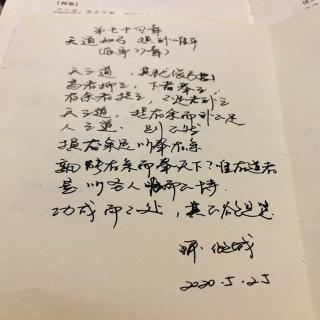 第七十四章
天道如弓
(原第77章)
天之道,其犹张弓与
高者抑之,下者举之
有余者损之,不足者补之
天之道,损有余而补不足
人之道,则不然
损不足以奉有余
孰能有余而奉天下?唯有道者
是以圣人为而不恃.
功成而不处,其不欲见贤
2020.5.25